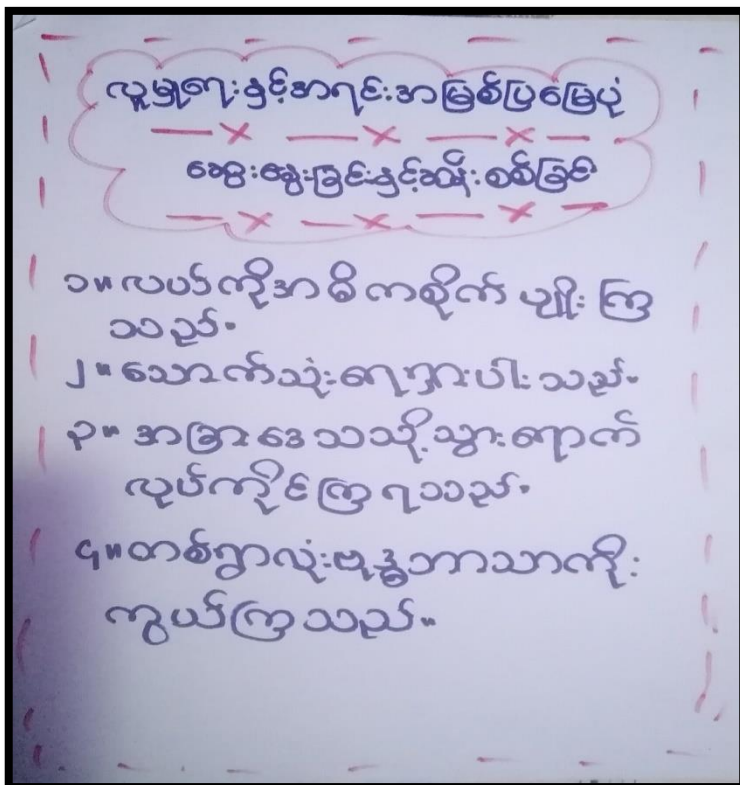 လူမှုရေးနှင့်အရင်းအမြစ်ပြမြေပုံ
ဆွေးနွေးခြင်းနှင့်ဆန်းစစ်ခြင်း
၁။လယ်ကိုအဓိကစိုက်ပျိုးကြ
သည်။
၂။သောက်သုံးရေရှားပါးသည်။
၃။အခြားဒေသသို့သွားရောက်
လုပ်ကိုင်ကြရသည်။
၄။တစ်ရွာလုံးဗုဒ္ဓဘာသာကိုး
ကွယ်ကြသည်။